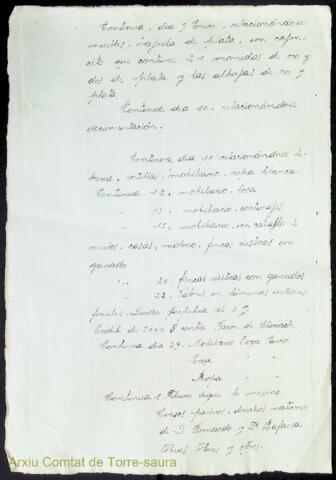 Continua, dia 9 Enero, relacionándose
muebles, vajilla de plata, un cajon-
cito que contiene 21 monedas de oro y
dos de plata y las alhajas de oro y
plata.
Continua dia 10, relacionándose
documentación.
Continua dia 11 relacionándose
mobiliario, ropa blanca
Continua 12, mobiliario, loza
" 13, mobiliario, cortinajes
" 15, mobiliario, un caballo 2
mulos, casas, molino, fincas rústicas con
ganado.
" 20. fincas rústicas con ganados
" 22. Valores en láminas intrans-
feribles. Deuda perpetua al
Credito de contra Baron de
Continua dia 29. Mobiliario Casa
Casa
Ropa
Continua 1 Febrero sigue lo mismo
Censos pasivos, derechos maternos
de D. Bernardo y Dª Rafaela
Olives y otros.
Arxiu Comtat de Torre-saura